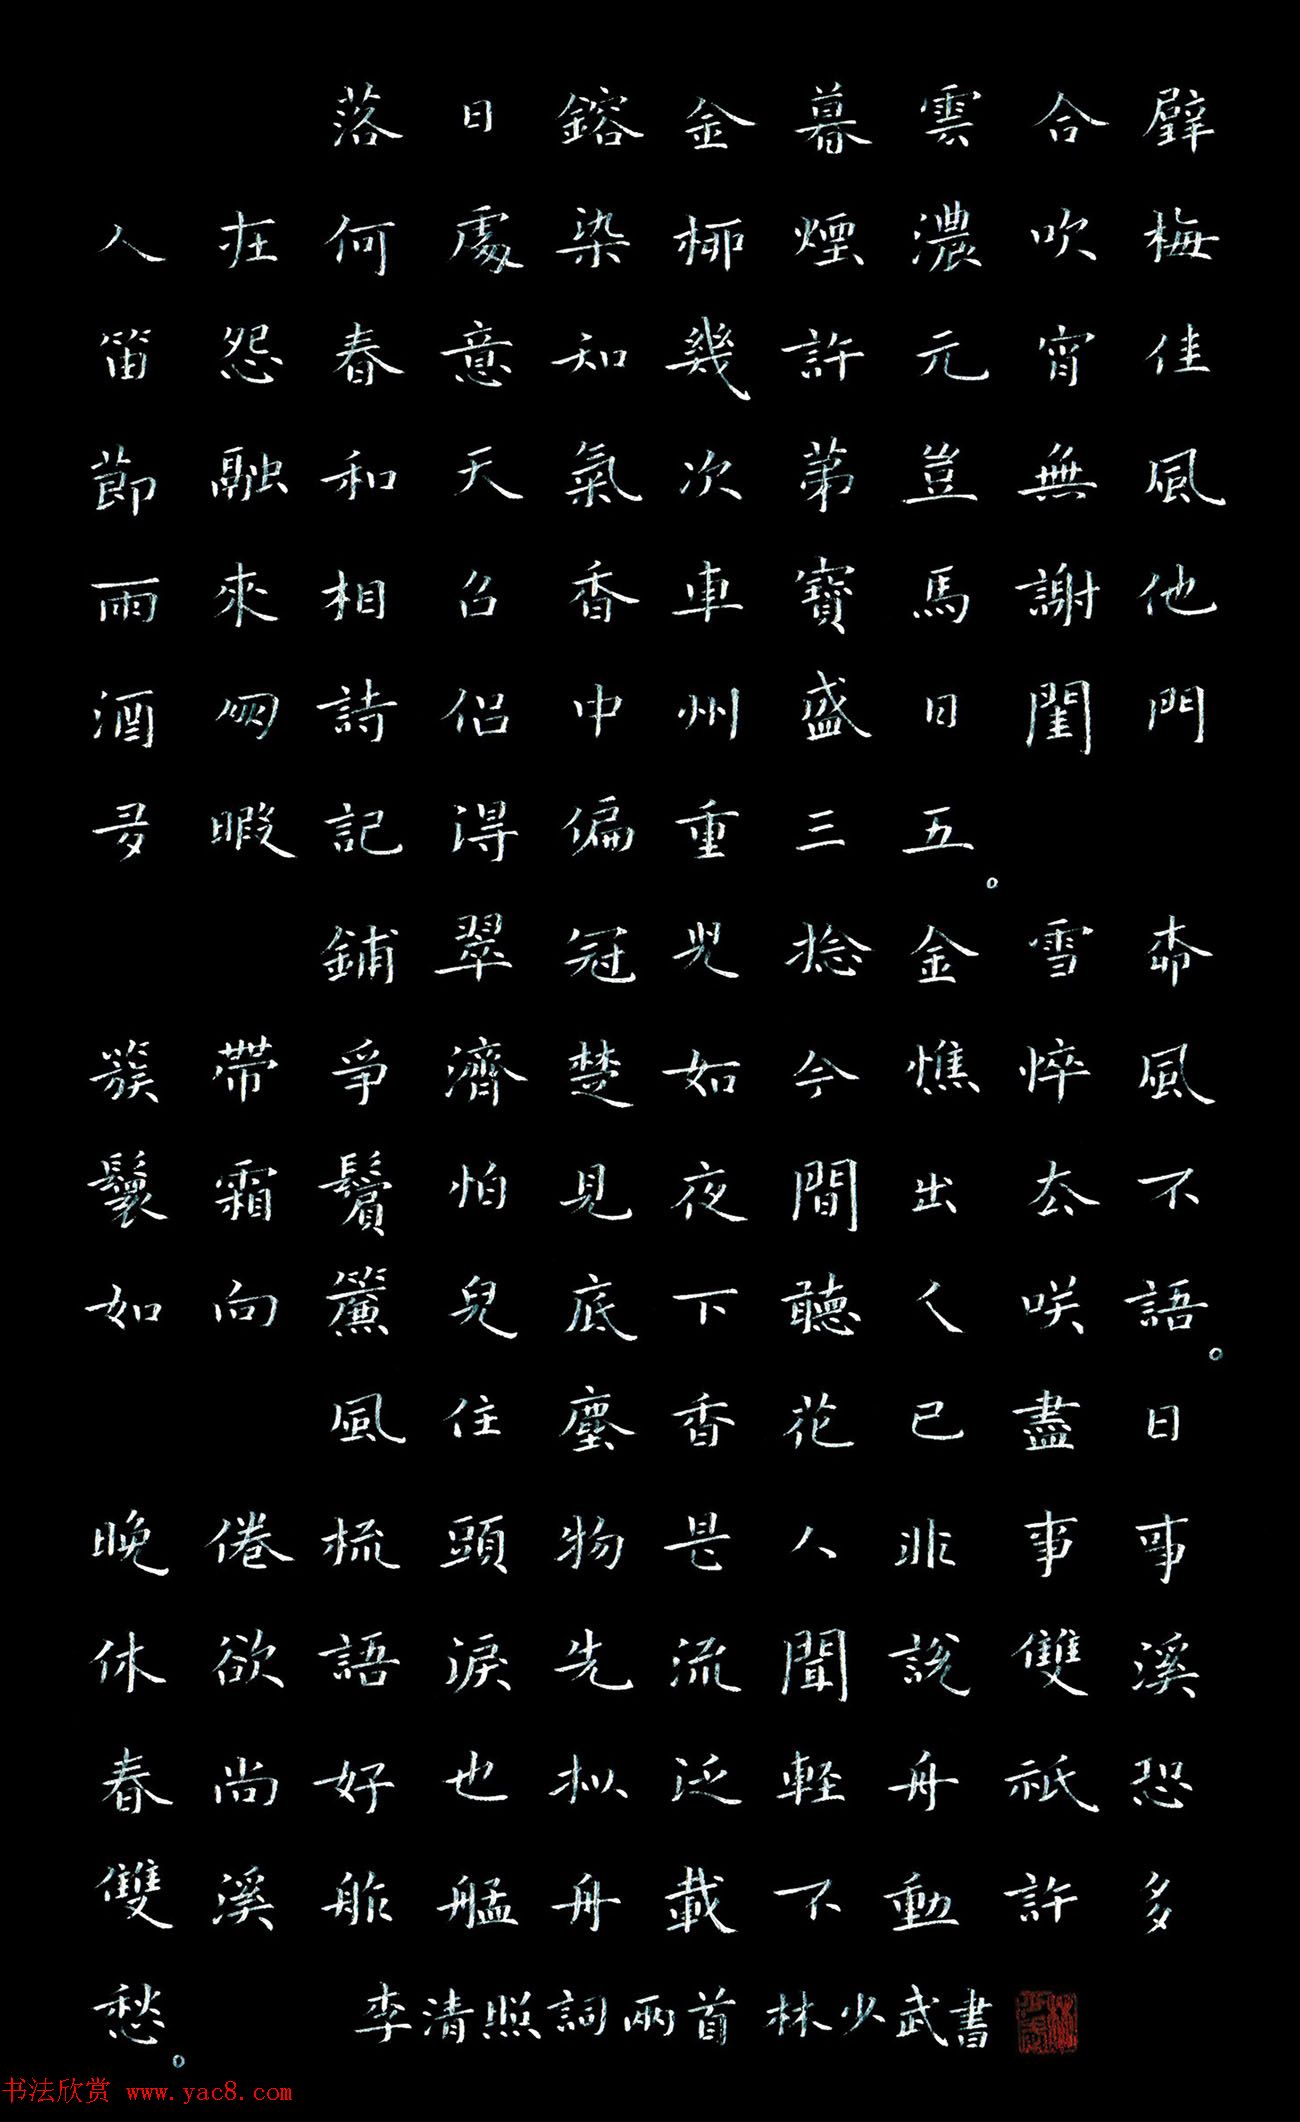 落日鎔金暮雲合璧
人在何處染柳煙濃吹梅
笛怨春意知幾許元宵佳
節融和天氣次第豈無風
雨來相召香車寶馬謝他
酒朋詩侶中州盛日閨門
多暇記得偏重三五。
鋪翠冠兒捻金雪柳
簇帶爭濟楚如今憔悴風
鬟霜鬢怕見夜間出去不
如向簾兒底下聽人咲語。
風住塵香花已盡日
晚倦梳頭物是人非事事
休欲語淚先流聞說雙溪
春尚好也拟泛軽舟祇恐
雙溪舴艋舟載不動許多
愁。 李清照詞兩首 林少武書
书法欣赏 www.yac8.com